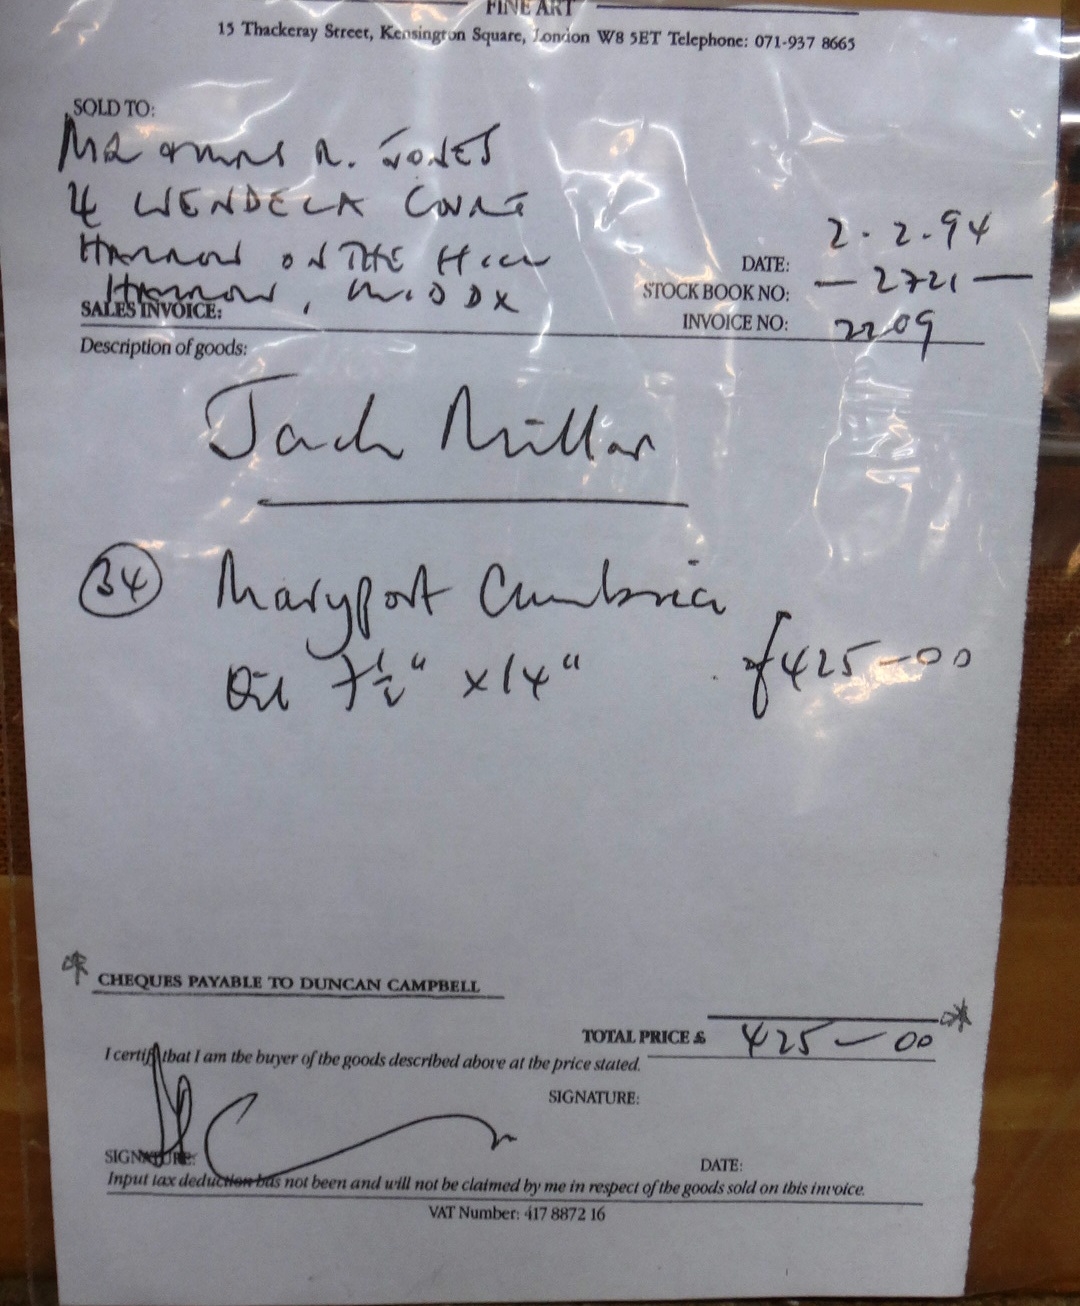 FINE ART
15 Thackeray Street, Kensington Square, London W8 5ET Telephone: 071-937 8665
SOLD TO:
MR & MRS R. JONES
4 WENDELA COURT
HARROW ON THE HILL
HARROW, MIDDX
DATE: 2.2.94
STOCK BOOK NO: — 2721 —
INVOICE NO: 2209
SALES INVOICE:
Description of goods:
Jack Millar
34 Maryport Cumbria
Oil 7½" x 14" £425-00
CHEQUES PAYABLE TO DUNCAN CAMPBELL
TOTAL PRICE £ 425-00
I certify that I am the buyer of the goods described above at the price stated.
SIGNATURE:
SIGNATURE:
DATE:
Input tax deduction has not been and will not be claimed by me in respect of the goods sold on this invoice.
VAT Number: 417 8872 16